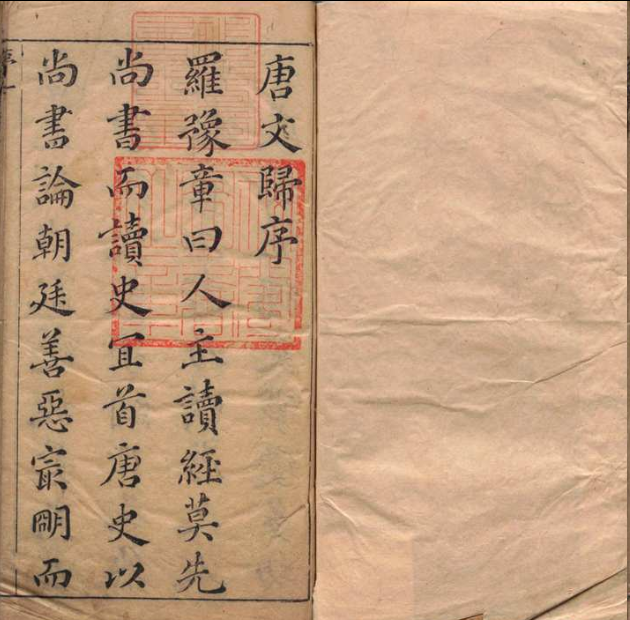 唐文歸序
羅豫章曰人主讀經莫先
尚書而讀史冝首唐史以
尚書論朝廷善惡㝡朙而